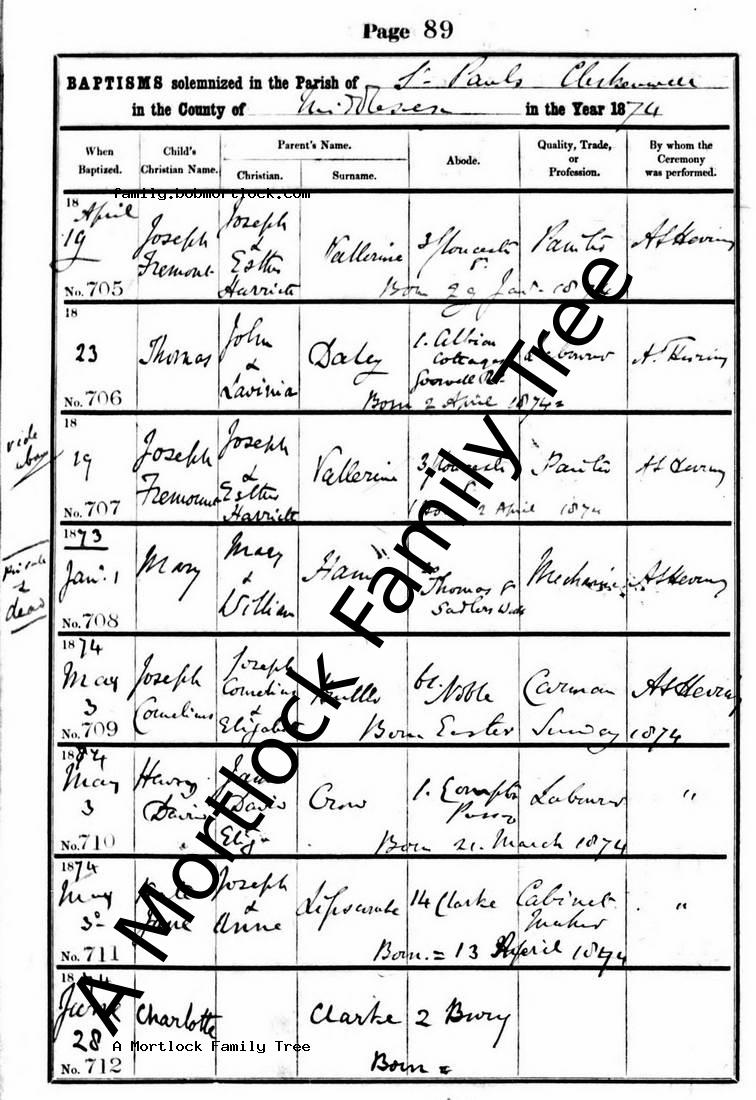 Page 89
BAPTISMS solemnized in the Parish of St Pauls Clerkenwell
in the County of Middlesex in the Year 1874
When Baptized.
Child's Christian Name.
Parent's Name.
Christian.
Surname.
Abode.
Quality, Trade, or Profession.
By whom the Ceremony was performed.
family.bobmortlock.com
18
April
19
No. 705
Joseph
Fremont
Joseph
&
Esther
Harriett
Vallerine
3 Gloucester
Painter
Born 29 Jan. 18
18
23
No. 706
Thomas
John
&
Lavinia
Daley
1. Albion
Cottages
Goswell Rd
A.
Born 2 April 1874 =
18
19
No. 707
vide
Joseph
Fremount
Joseph
&
Esther
Harriett
Vallerine
3 Gloucester
Painter
2 April 1874
1873
Jany. 1
No. 708
Private
&
dead
Mary
Mary
&
William
Ham
Thomas St
Sadlers Wells
Mechanic
1874
May
3
No. 709
Joseph
Cornelius
Joseph
Cornelius
&
Elizabeth
Noble
Carman
Born Easter Sunday 1874
1874
May
3
No. 710
Henry
David
David
Eliz
Crow
1. Compton
Passg
Labourer
"
Born 21. March 1874
1874
May
3
No. 711
Kate
Jane
Joseph
&
Anne
Lipscombe
14 Clarke
Cabinet
Maker
"
Born. = 13 April 1874
18
June
28
No. 712
Charlotte
Clarke
2 Bury
Born =
A Mortlock Family Tree
A Mortlock Family Tree